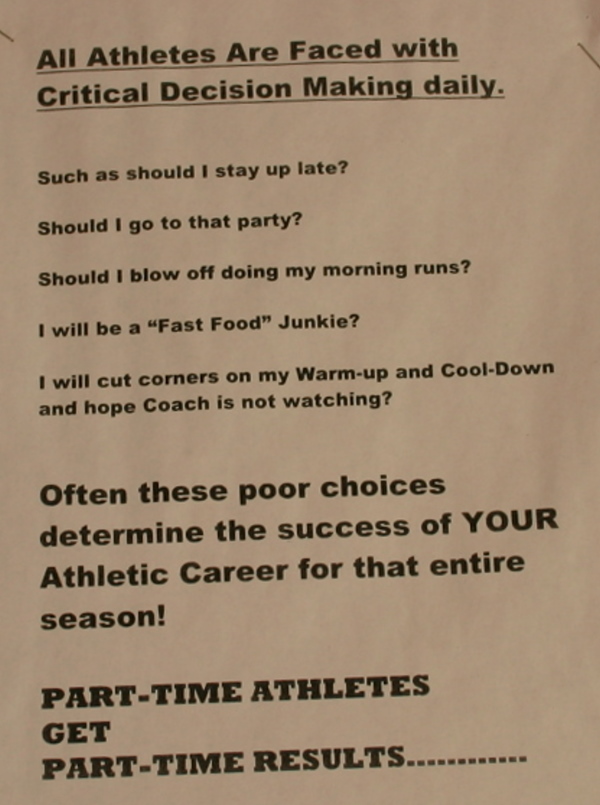 All Athletes Are Faced with
Critical Decision Making daily.
Such as should I stay up late?
Should I go to that party?
Should I blow off doing my morning runs?
I will be a “Fast Food” Junkie?
I will cut corners on my Warm-up and Cool-Down
and hope Coach is not watching?
Often these poor choices
determine the success of YOUR
Athletic Career for that entire
season!
PART-TIME ATHLETES
GET
PART-TIME RESULTS............